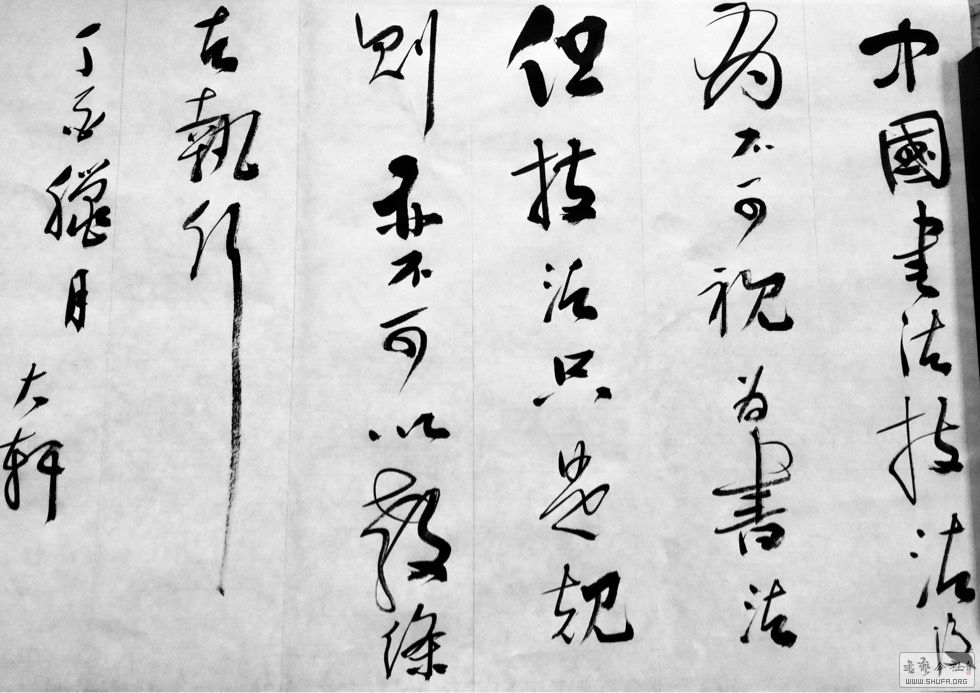 中國書法技法没
有不可視為書法
但技法只是規
則亦不可以教條
去執行
丁酉臘月
大軒
書藝公社
WWW.SHUFA.ORG